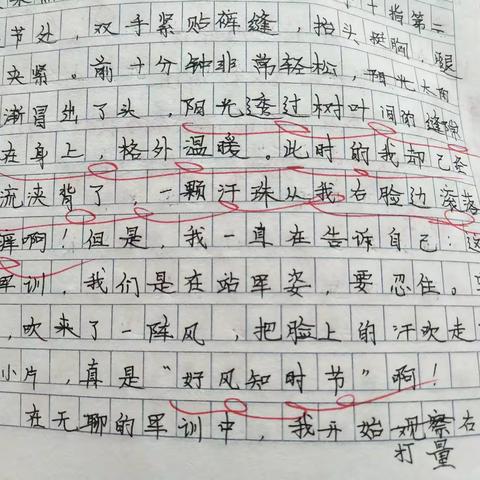 十指第二
节处，双手紧贴裤缝，抬头挺胸，腿
夹紧。前十分钟非常轻松，阳光大
渐冒出了头，阳光透过树叶间的缝隙
在身上，格外温暖。此时的我却已经
流浃背了，一颗汗珠从我右脸边滚落
痒啊！但是，我一直在告诉自己：这
军训，我们是在站军姿，要忍住。
，吹来了一阵风，把脸上的汗吹走
小片，真是“好风知时节”啊！
在无聊的军训中，我开始观察右
打量